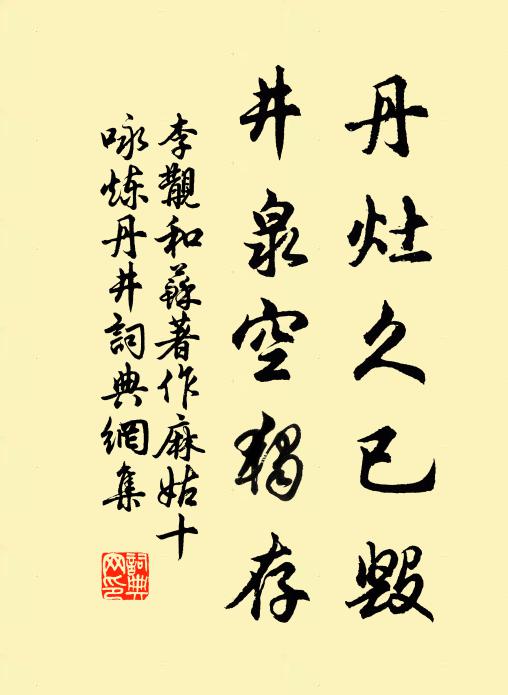 丹灶久已毀
井泉空獨存
李覯和蘇著作麻姑十
咏煉丹井詞典網集
詞典
网印